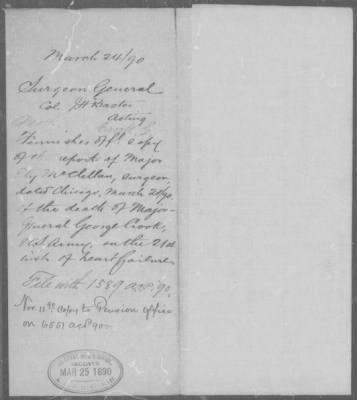 March 24/90
Surgeon General
Col. J H Baxter
Acting
Furnishes off'l copy
of report of Major
Ely McClellan, Surgeon
dated Chicago, March 21/90,
of the death of Major-
General George Crook,
U.S. Army, on the 21st
inst. of heart failure.
File with 1589 ACP '90.
Nov. 11 90 copy to Pension Office
on 6551 ACP 90
RECEIVED
MAR 25 1890